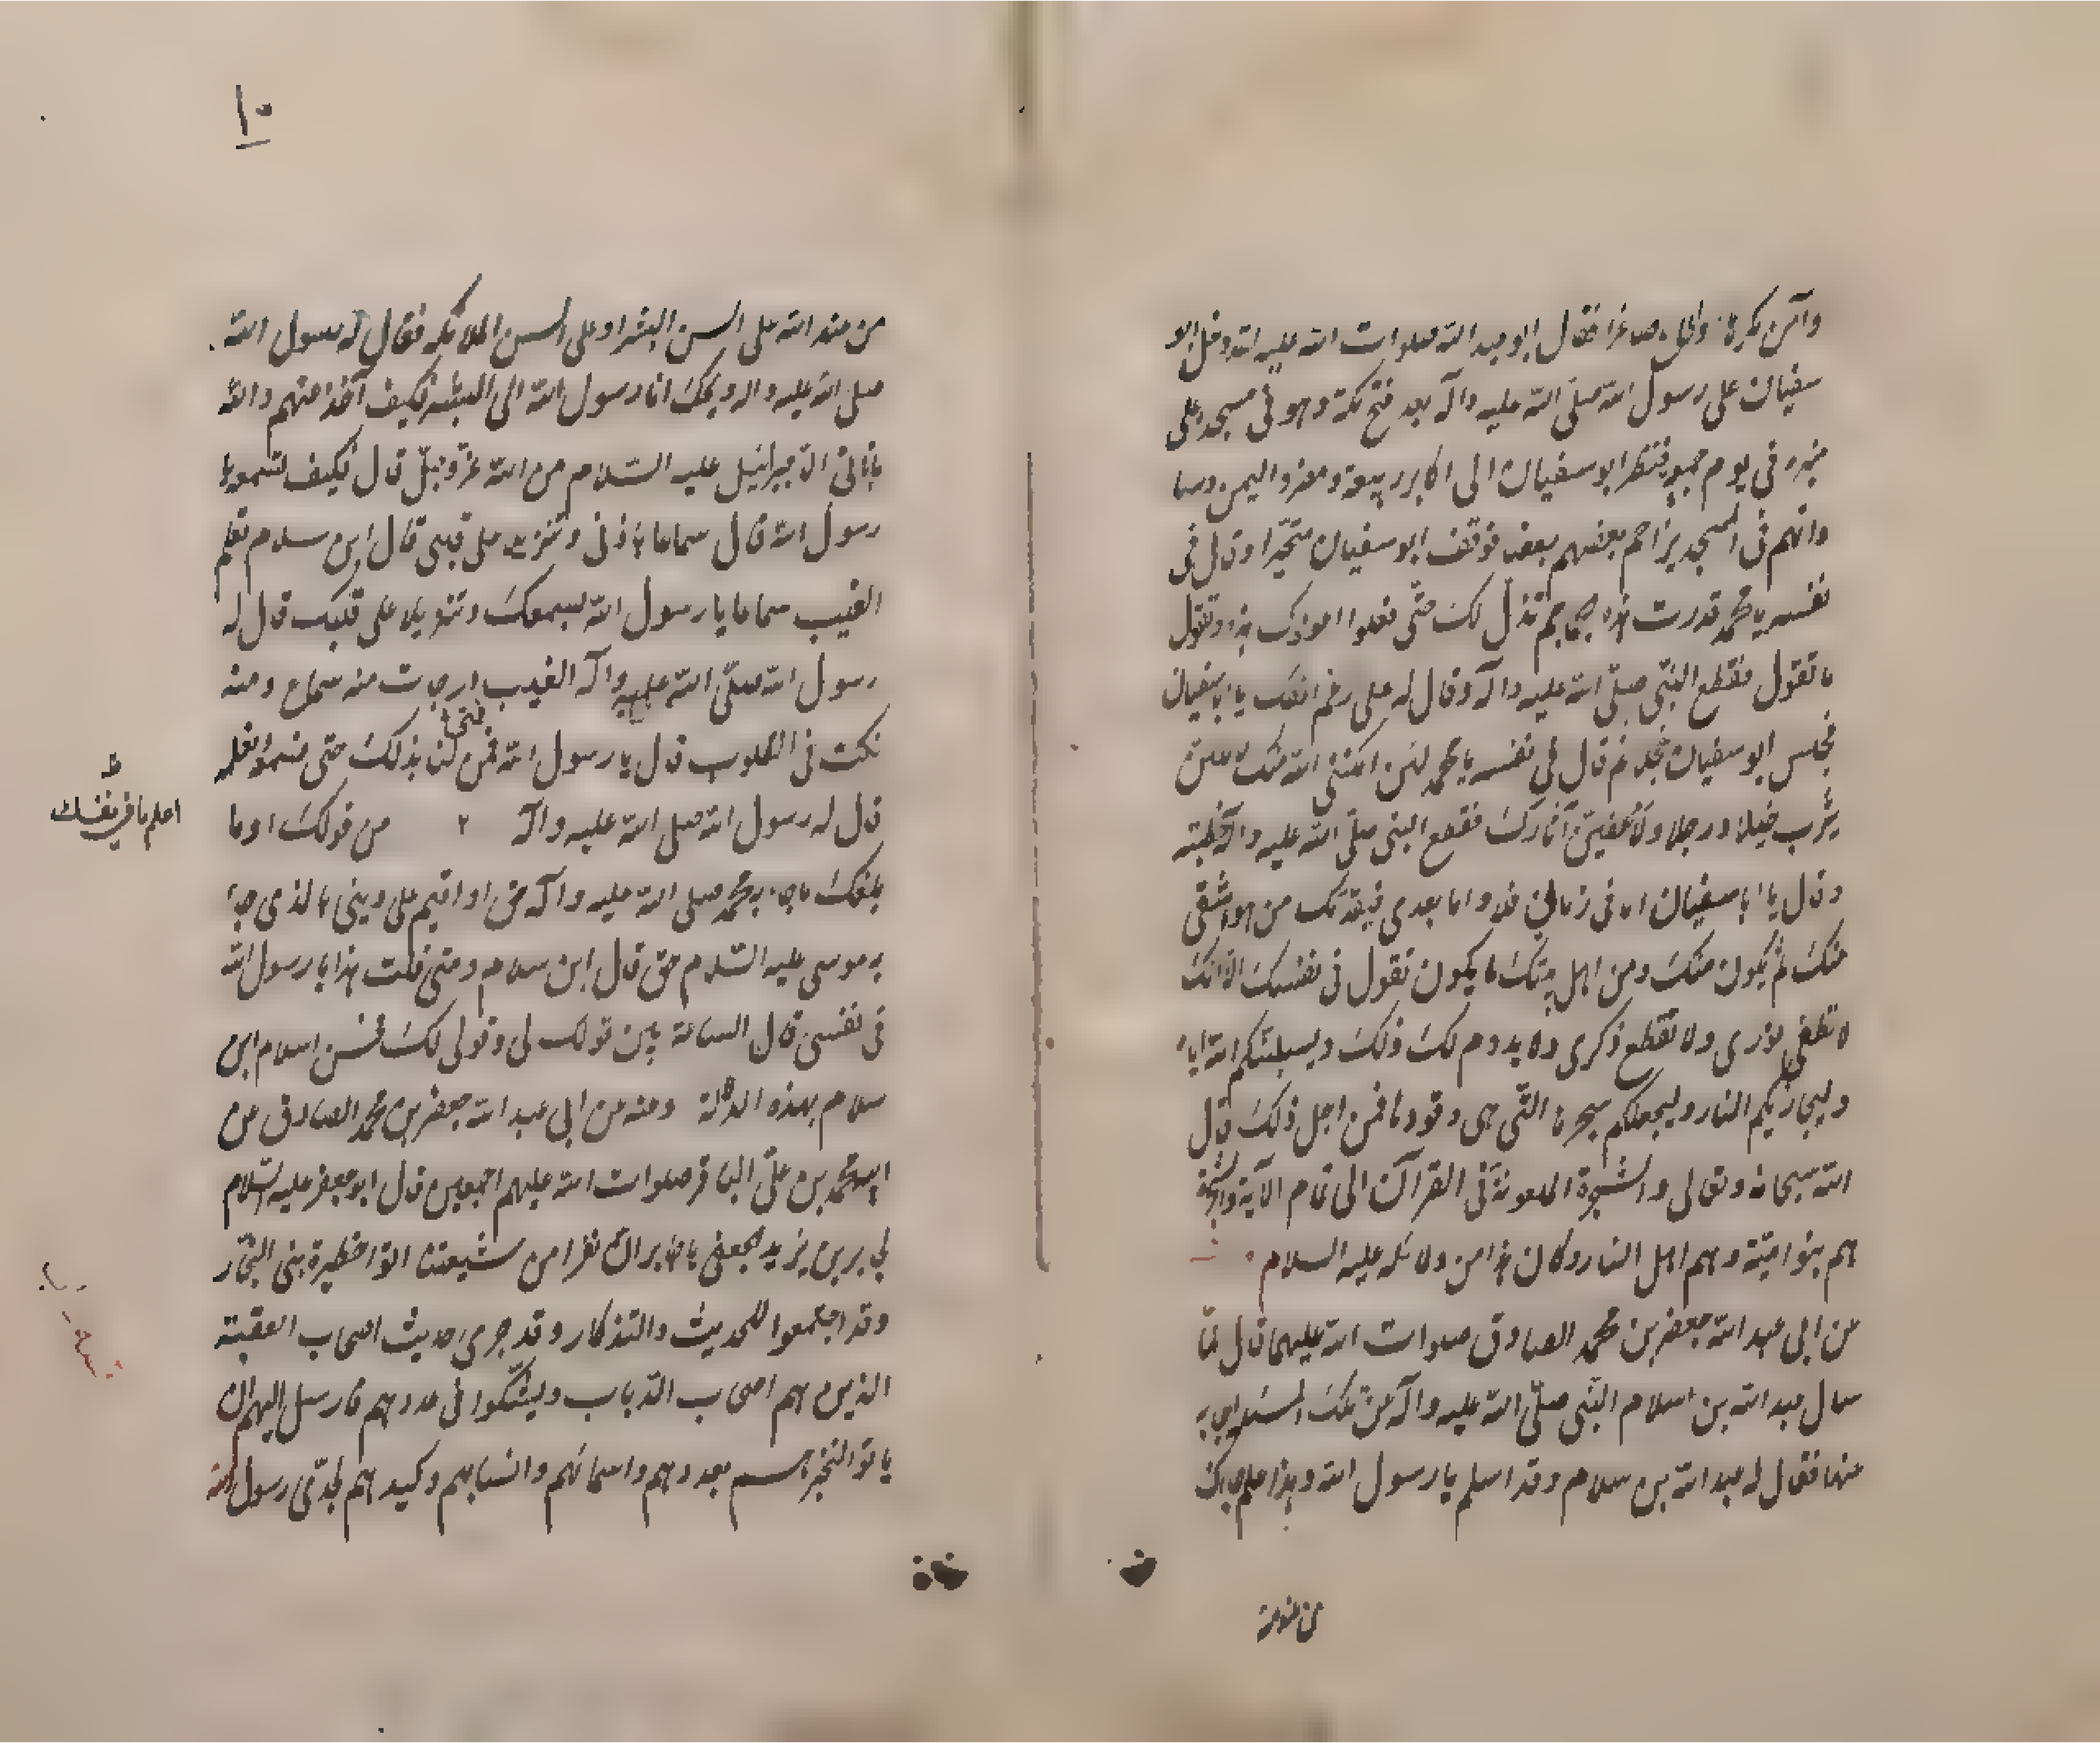 وآمن بكرة وقال صاغرا فقال ابو عبد الله صلوات الله عليه انه دخل ابو
سفيان على رسول الله صلى الله عليه وآله بعد فتح مكة وهو في مسجده على
منبره في يوم جمعة فنظر ابو سفيان الى اكابر ربيعة ومضر واليمن وساد
وانهم في المسجد يزاحم بعضهم بعضا فوقف ابو سفيان متحيرا وقال في
نفسه يا محمد قدرت هذه الجماجم تذل لك حتى تعلوا اعوادك هذه وتقول
ما تقول فقطع النبي صلى الله عليه وآله وقال له على رغم انفك يا ابا سفيان
فجلس ابو سفيان خجلا ثم قال في نفسه يا محمد لئن امكنني الله منك لاملئن
يثرب خيلا ورجلا ولاعفين آثارك فقطع النبي صلى الله عليه وآله خطبته
وقال يا ابا سفيان اما في زماني فلا واما بعدي فيتقدمك من هو اشقى
منك ثم يكون منك ومن اهل بيتك ما يكون تقول في نفسك الا انك
لا تطفئ نوري ولا تقطع ذكري ولا يدوم لك ذلك ويسلبنكم الله اياه
وليجازيكم النار وليجعلكم شجرها التي هي وقودها فمن اجل ذلك قال
الله سبحانه وتعالى والشجرة الملعونة في القرآن الى تمام الآية والشجرة
هم بنو امية وهم اهل النار وكان هذا من دلائله عليه السلام
عن ابي عبد الله جعفر بن محمد الصادق صلوات الله عليهما قال لما
سال عبد الله بن سلام النبي صلى الله عليه وآله عن تلك المسائل واجابه
عنها فقال له عبد الله بن سلام وقد اسلم يا رسول الله وهذا علم جاءك
من عند الله
١٠
من عند الله على السن البشر او على السن الملائكة فقال له رسول الله
صلى الله عليه واله ويحك انا رسول الله الى البشر فكيف آخذ منهم والله
ما اتاني الا جبرائيل عليه السلام من الله عز وجل قال فكيف تسمعه يا
رسول الله قال سماعا باذني وتنزيلا على قلبي قال ابن سلام تعلم
الغيب سماعا يا رسول الله بسمعك وتنزيلا على قلبك قال له
رسول الله صلى الله عليه وآله الغيب درجات منه سماع ومنه
نكت في القلوب قال يا رسول الله فمن لنا بذلك حتى نفتح منه ونعلمه
قال له رسول الله صلى الله عليه وآله ٢ من قولك او ما
اعلم ما في نفسك
بلغك ما جاء به محمد صلى الله عليه وآله حق او اقيم على ديني ما لذي جاء
به موسى عليه السلام حق قال ابن سلام ومتى قلت هذا يا رسول الله
في نفسي قال الساعة بين قولك لي وقولي لك فحسن اسلام ابن
سلام بهذه الدلالة وعنه عن ابي عبد الله جعفر بن محمد الصادق عن
ابيه محمد بن علي الباقر صلوات الله عليهم اجمعين قال ابو جعفر عليه السلام
لجابر بن يزيد الجعفي يا جابر ان نفرا من شيعتنا اتوا حظيرة بني النجار
وقد اجتمعوا للحديث والتذكار وقد جرى حديث اصحاب العقبة
الذين هم اصحاب الدباب وليشكوا في عددهم فارسل اليهم ان
ياتوا لنخبرهم بعددهم واسمائهم وانسابهم وكيدهم لجدي رسول الله